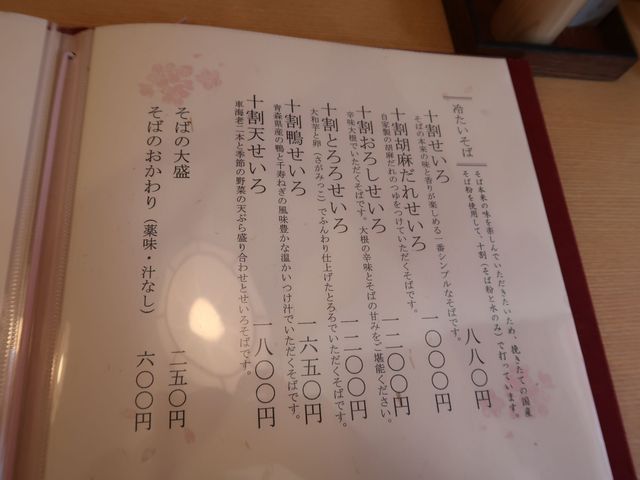 冷たいそば
そば本来の味を楽しんでいただきたいため、挽きたての国産
そば粉を使用して、十割(そば粉と水のみ)で打っています。
十割せいろ 八八〇円
そばの本来の味と香りが楽しめる一番シンプルなそばです。
十割胡麻だれせいろ 一〇〇〇円
自家製の胡麻だれのつゆをつけていただくそばです。
十割おろしせいろ 一二〇〇円
辛味大根でいただくそばです。大根の辛味とそばの甘みをご堪能ください。
十割とろろせいろ 一二〇〇円
大和芋と卵(さがみっこ)でふんわり仕上げたとろろでいただくそばです。
十割鴨せいろ 一六五〇円
青森県産の鴨と千寿ねぎの風味豊かな温かいつけ汁でいただくそばです。
十割天せいろ 一八〇〇円
車海老二本と季節の野菜の天ぷら盛り合わせとせいろそばです。
そばの大盛 二五〇円
そばのおかわり(薬味・汁なし) 六〇〇円